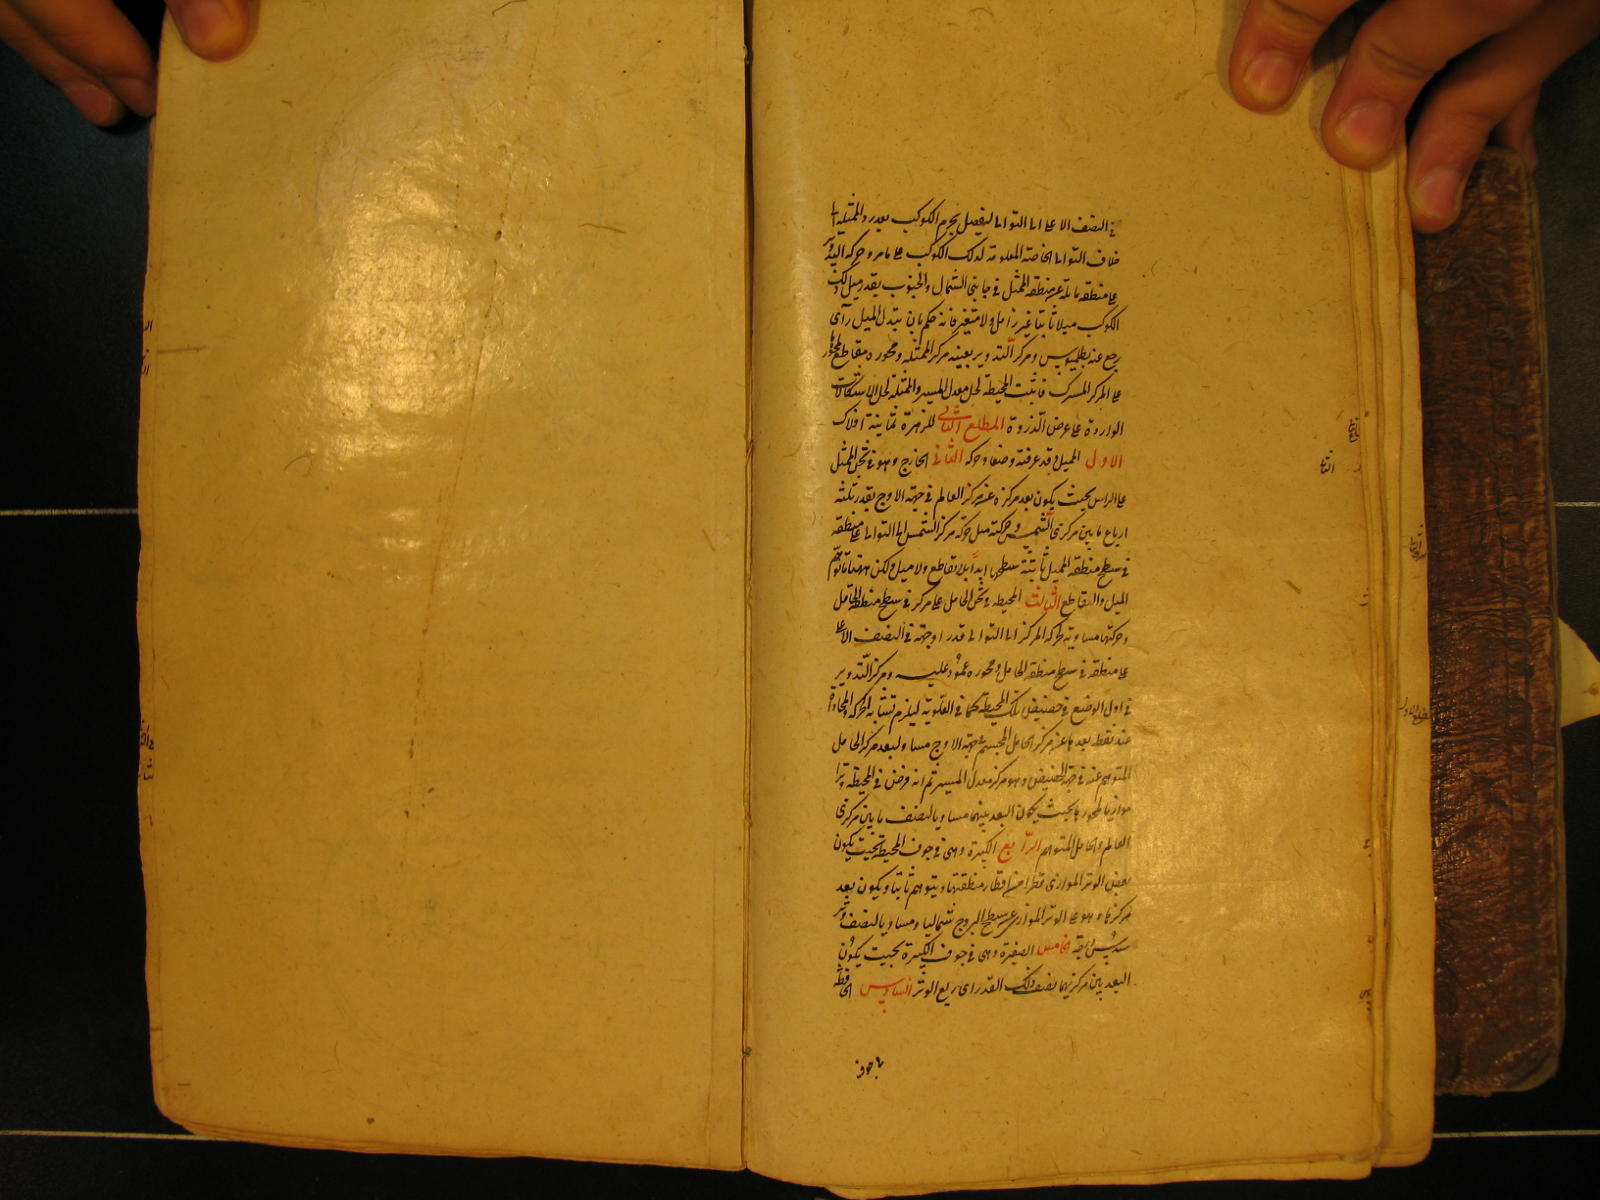 في النصف الاعلى الى التوالى ليفصل بجرم الكوكب بعد رد الممثلة الى
خلاف التوالى الخاصة المعلومة لذلك الكوكب على ما مر وحركة التدوير
على منطقة مائلة عن منطقة الممثل في جانبى الشمال والجنوب بقدر ميل ذلك
الكوكب ميلا ثابتا غير زايل ولا متغير فانه حكم بان تبدل الميل رآى
رجع عنه بطلميوس ومركز التدوير بعينه مركز الممثلة ومحوره مقاطع لمحورها
على المركز المشترك فاثبت المحيطة لحل معدل المسير والممثلة لحل الاشكالات
الواردة على عرض الذروة المطلع الثانى للزهرة ثمانية افلاك
الاول المميل وقد عرفته وضعا وحركة الثانى الخارج وهو في ثخن الممثل
على الراس بحيث يكون بعد مركزه عن مركز العالم في جهة الاوج بقدر ثلثة
ارباع ما بين مركزى الشمس وحركته مثل حركة مركز الشمس الى التوالى على منطقة
في سطح منطقة المميل ثابتة سطحها ابدا بلا تقاطع ولا ميل ولكن
الميل والتقاطع الثالث المحيطة في ثخن الحامل على مركز في سطح منطقة الحامل
وحركتها مساوية لحركة المركز الى التوالى قدرا وجهة في النصف الاعلى
على منطقة في سطح منطقة الحامل ومحوره عمود عليه ومركز التدوير
في اول الوضع في حضيض تلك المحيطة كما في العلوية ليلزم تشابه الحركة والمحاذاة
عند نقطة بعدها عن مركز الحامل المجسم في جهة الاوج مساو لبعد مركز الحامل
المتوهم عنه في جهة الحضيض وهو مركز معدل المسير ثم انه فرض في المحيطة وترا
موازيا لمحورها بحيث يكون البعد بينهما مساويا لنصف ما بين مركزى
العالم والحامل المتوهم الرابع الكبيرة وهى في جوف المحيطة بحيث يكون
بعض الوتر الموازى قطرا من اقطار منطقتها ويتوهم ثابتا ويكون بعد
مركزها وهو على الوتر الموازى عن سطح البروج شماليا ومساويا لنصف
سدس دقيقة الخامس الصغيرة وهى في جوف الكبيرة بحيث يكون
البعد بين مركزيهما نصف ذلك القدر اى ربع الوتر السادس الحافظة
في جوف